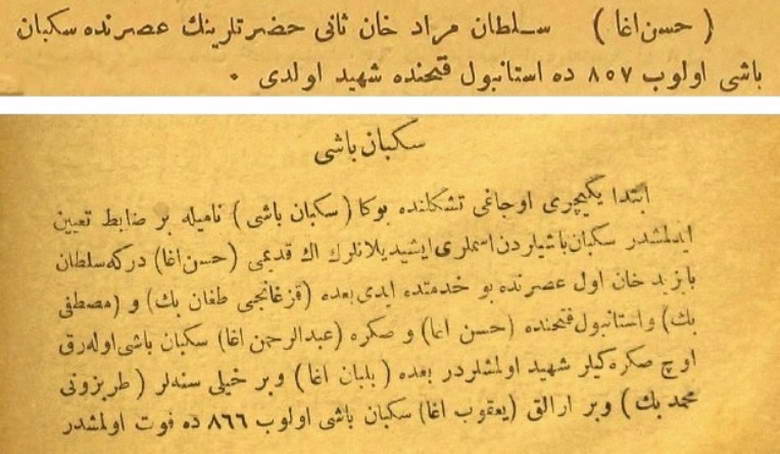 ( حسن اغا ) سلطان مراد خان ثانی حضرتلرینك عصرنده سكبان
باشی اولوب ٨٥٧ ده استانبول فتحنده شهید اولدی ٠
سكبان باشی
ابتدا یگیچری اوجاغی تشكلنده بوكا ( سكبان باشی ) نامیله بر ضابط تعیین
ایدلمشدر سكبان باشیلردن اسملری ایشیدیلانلرك اك قدیمی ( حسن اغا ) دركه سلطان
بایزید خان اول عصرنده بو خدمتده ایدی بعده ( قزغانجی طغان بك ) و ( مصطفی
بك ) و استانبول فتحنده ( حسن اغا ) و صكره ( عبدالرحمن اغا ) سكبان باشی اوله رق
اوچ صكره كیلر شهید اولمشلردر بعده ( بلبان اغا ) وبر خیلی سنه لر ( طربزونی
محمد بك ) وبر ارالق ( یعقوب اغا ) سكبان باشی اولوب ٨٦٦ ده فوت اولمشدر